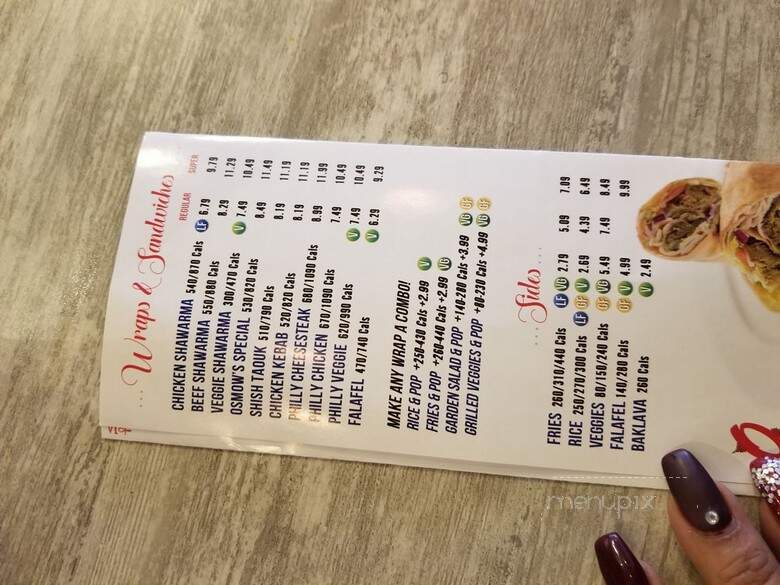 ... Wraps & Sandwiches ...
REGULAR SUPER
CHICKEN SHAWARMA 540/870 Cals LF 6.79 9.79
BEEF SHAWARMA 550/880 Cals 8.29 11.29
VEGGIE SHAWARMA 300/470 Cals V 7.49 10.49
OSMOW'S SPECIAL 530/820 Cals 8.49 11.49
SHISH TAOUK 510/790 Cals 8.19 11.19
CHICKEN KEBAB 520/820 Cals 8.19 11.19
PHILLY CHEESESTEAK 680/1090 Cals 8.99 11.99
PHILLY CHICKEN 670/1090 Cals 7.49 10.49
PHILLY VEGGIE 620/990 Cals V 7.49 10.49
FALAFEL 470/740 Cals V 6.29 9.29
MAKE ANY WRAP A COMBO!
RICE & POP +250-430 Cals +2.99 V
FRIES & POP +260-440 Cals +2.99 VG
GARDEN SALAD & POP +140-200 Cals +3.99 VG GF
GRILLED VEGGIES & POP +80-230 Cals +4.99 VG GF
... Sides ...
FRIES 260/310/440 Cals LF VG 2.79 5.09 7.09
RICE 250/270/300 Cals LF GF V 2.69 4.39 6.49
VEGGIES 80/150/240 Cals GF VG 5.49 7.49 8.49
FALAFEL 140/280 Cals GF V 4.99 9.99
BAKLAVA 260 Cals V 2.49
menupix